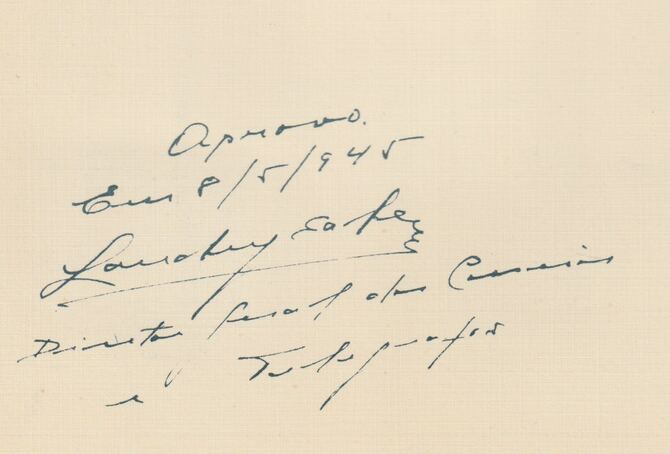 Aprovo.
Em 8/5/945
Landry Sales
Diretor Geral dos Correios
e Telegrafos